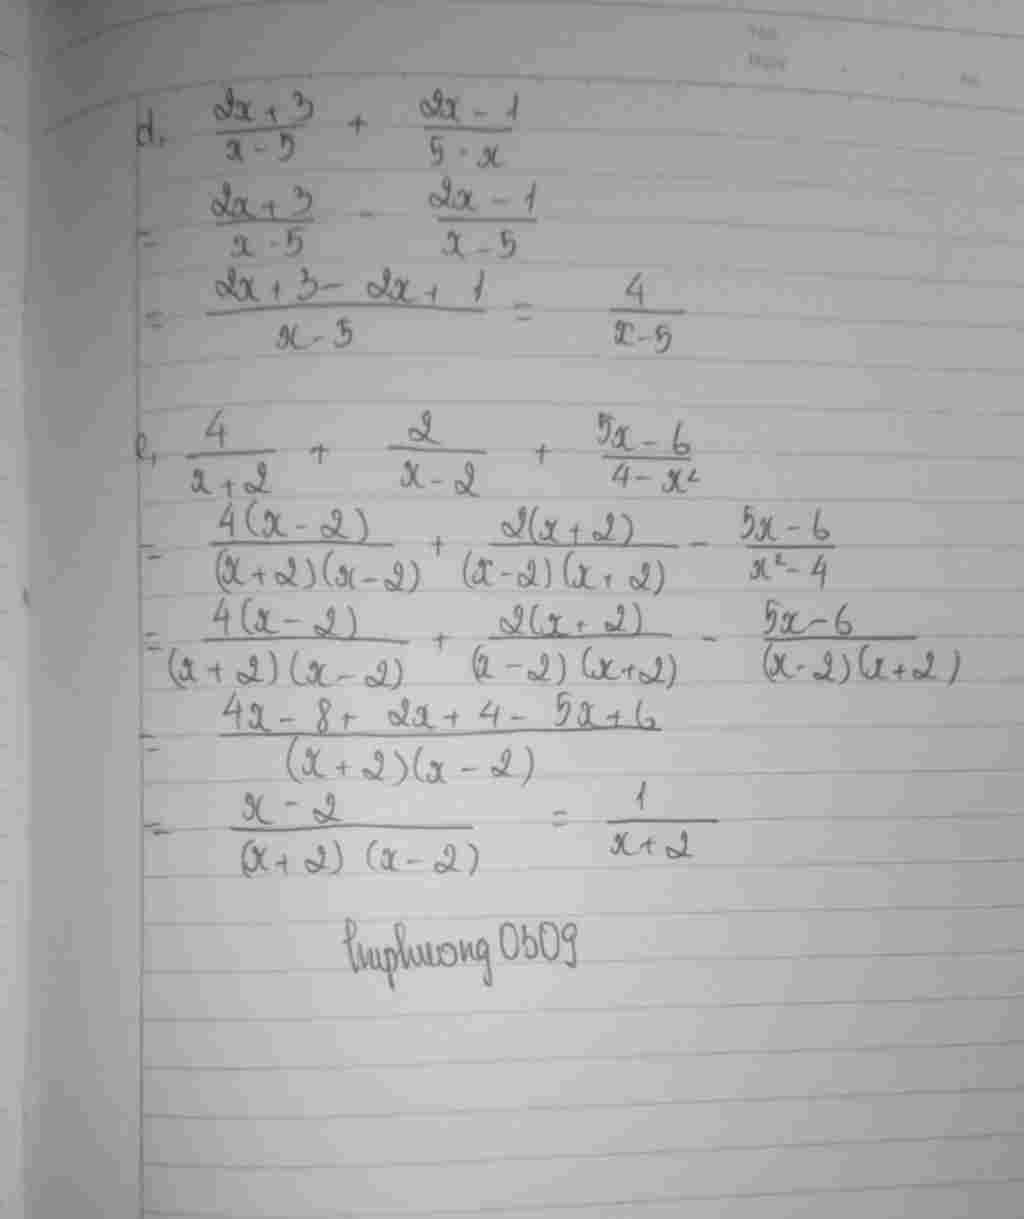 d, \frac{2x+3}{x-5} + \frac{2x-1}{5-x}
= \frac{2x+3}{x-5} - \frac{2x-1}{x-5}
= \frac{2x+3-2x+1}{x-5} = \frac{4}{x-5}
e, \frac{4}{x+2} + \frac{2}{x-2} + \frac{5x-6}{4-x^2}
= \frac{4(x-2)}{(x+2)(x-2)} + \frac{2(x+2)}{(x-2)(x+2)} - \frac{5x-6}{x^2-4}
= \frac{4(x-2)}{(x+2)(x-2)} + \frac{2(x+2)}{(x-2)(x+2)} - \frac{5x-6}{(x-2)(x+2)}
= \frac{4x-8+2x+4-5x+6}{(x+2)(x-2)}
= \frac{x-2}{(x+2)(x-2)} = \frac{1}{x+2}